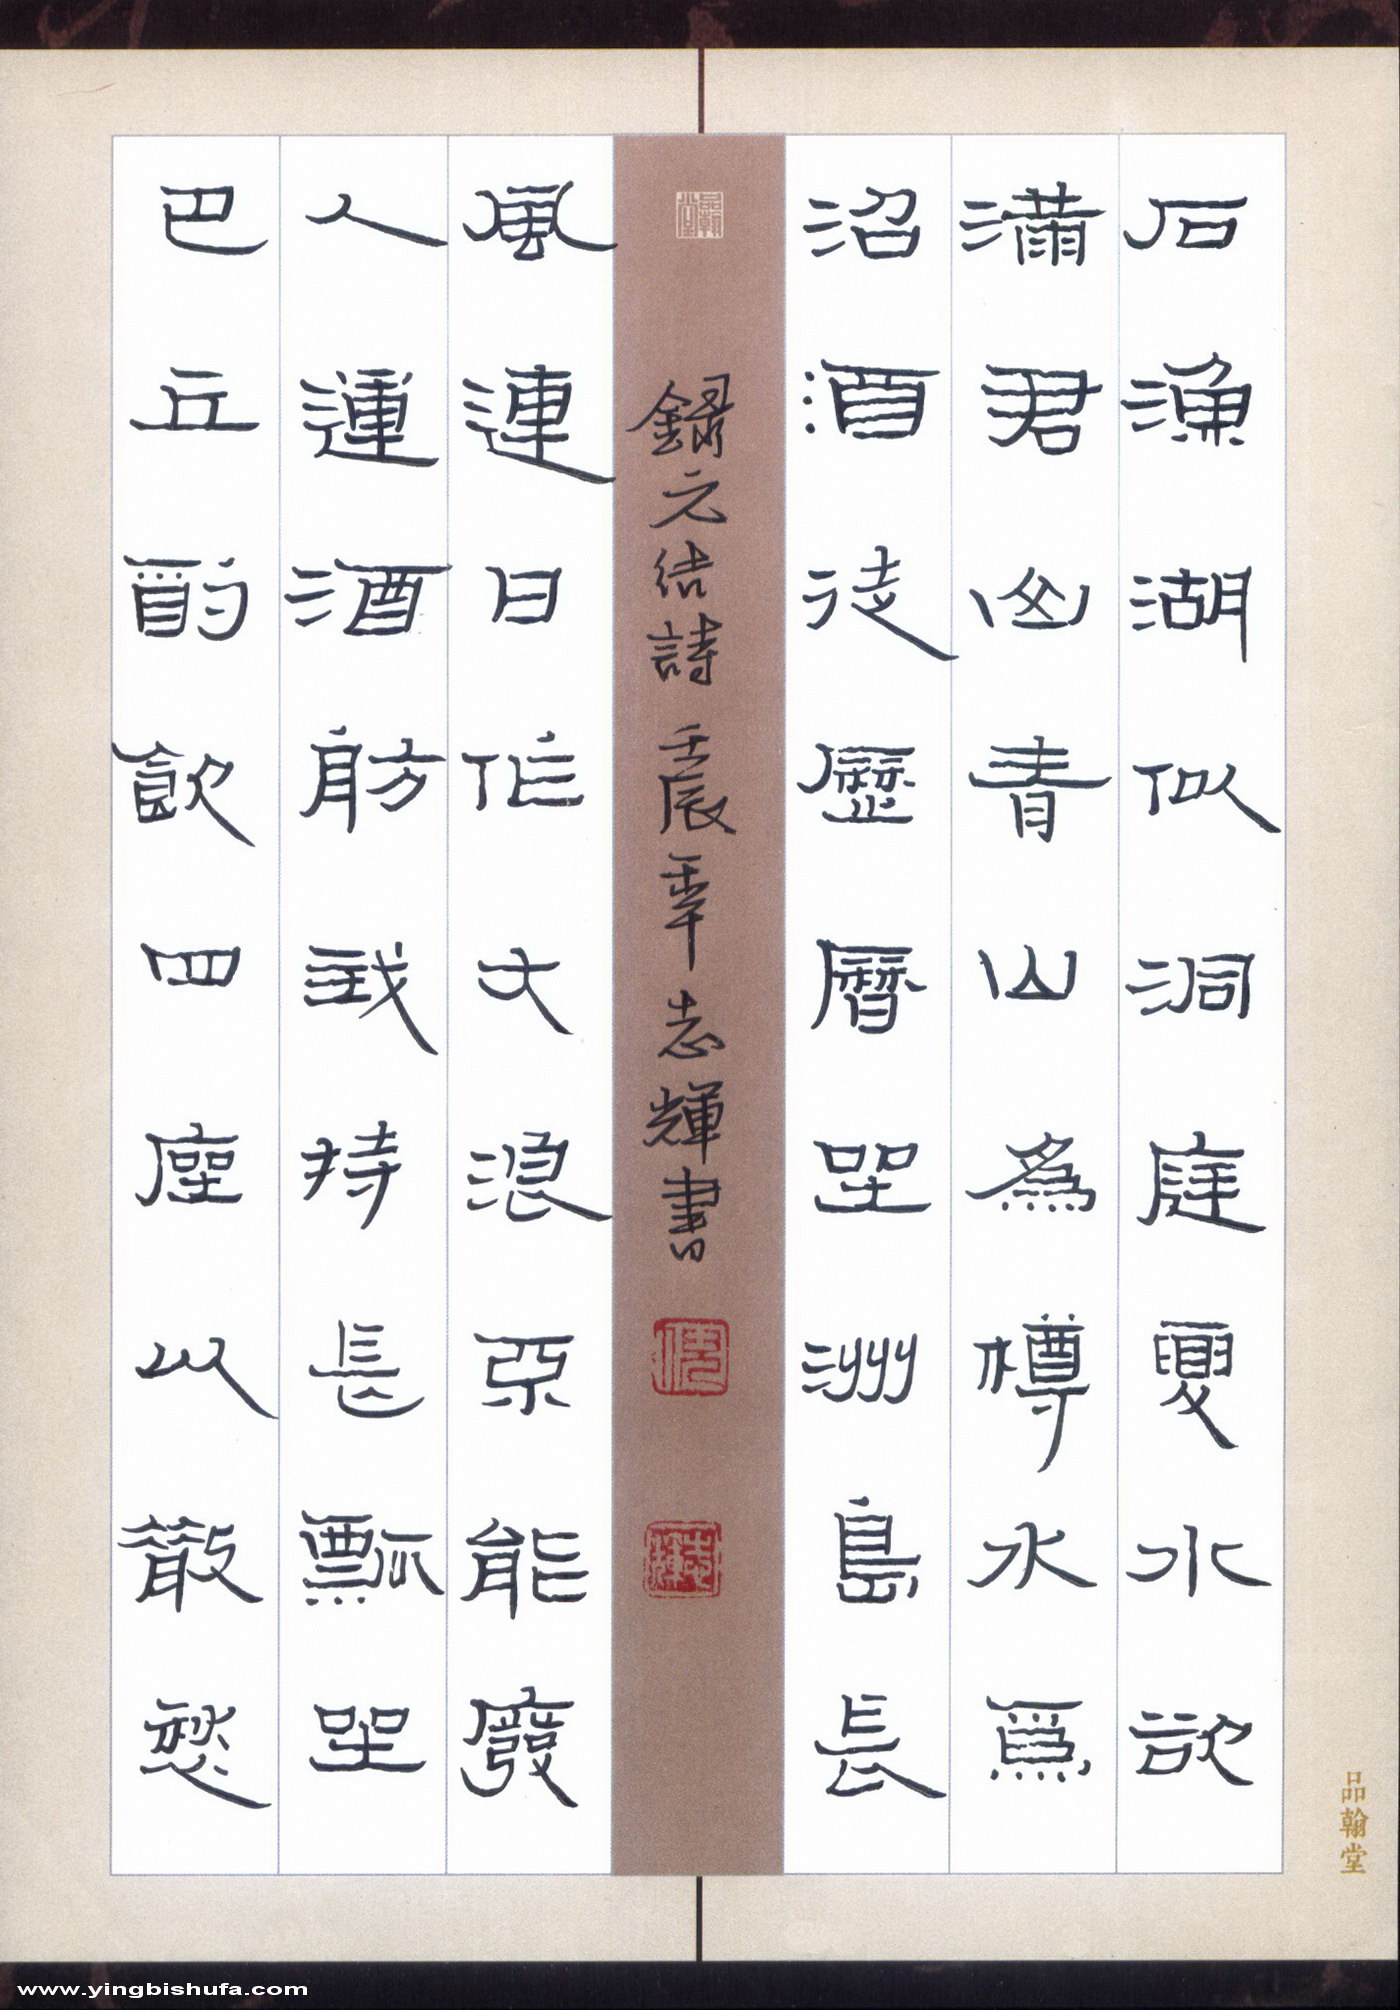 石漁湖似洞庭夏水欲
滿君山青山為樽水爲
沼酒徒歷曆坐洲島長
風連日作大浪不能廢
人運酒舫我持長瓢坐
巴丘酌飲四座以散愁
品翰堂
錄元結詩 壬辰年志輝書
志輝
品翰堂
www.yingbishufa.com